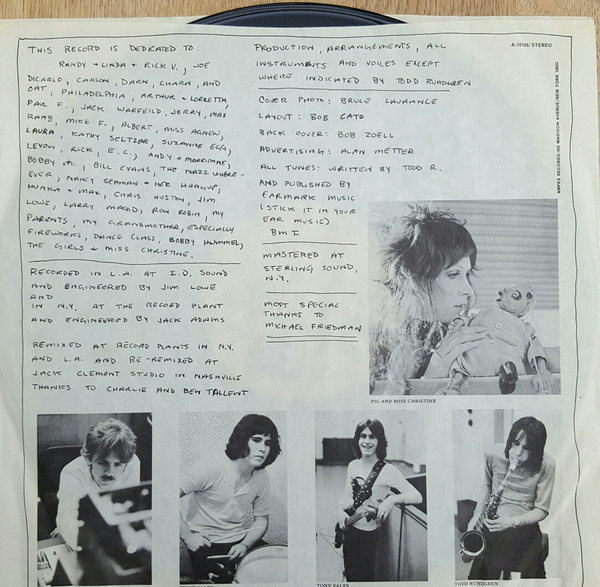 THIS RECORD IS DEDICATED TO:
RANDY + LINDA + RICK V., JOE
DICARLO, CARSON, DARN, CHARA, AND
OAT, PHILADELPHIA, ARTHUR + LORRETTA,
PAUL F., JACK WARFEILD, JERRY, MAX
RAAB, MIKE F., ALBERT, MISS AGNEW,
LAURA, KATHY SELTZER, SUZANNE EGR,
LEVON, RICK, E.C., ANDY + MORRIONNE,
BOBBY, BILL EVANS, THE NAZZ WHERE-
EVER, NANCY SEAMAN + HER HANGUP,
HUNKA + MAX, CHRIS HUSTON, JIM
LOWE, LARRY MAGID, RON ROBIN, MY
PARENTS, MY GRANDMOTHER, ESPECIALLY
FIREWORKS, DANCE CLASS, BOBBY HUMMEL,
THE GIRLS + MISS CHRISTINE.
RECORDED IN L.A. AT I.D. SOUND
AND ENGINEERED BY JIM LOWE
AND
IN N.Y. AT THE RECORD PLANT
AND ENGINEERED BY JACK ADAMS
REMIXED AT RECORD PLANTS IN N.Y.
AND L.A. AND RE-REMIXED AT
JACK CLEMENT STUDIO IN NASHVILLE
THANKS TO CHARLIE AND BEN TALLENT
PRODUCTION, ARRANGEMENTS, ALL
INSTRUMENTS AND VOICES EXCEPT
WHERE INDICATED BY TODD RUNDGREN
COVER PHOTO: BRUCE LAURANCE
LAYOUT: BOB CATO
BACK COVER: BOB ZOELL
ADVERTISING: ALAN METTER
ALL TUNES: WRITTEN BY TODD R.
AND PUBLISHED BY
EARMARK MUSIC
(STICK IT IN YOUR
EAR MUSIC)
BMI
MASTERED AT
STERLING SOUND,
N.Y.
MOST SPECIAL
THANKS TO
MICHAEL FRIEDMAN
A-10105/STEREO
AMPEX RECORDS/555 MADISON AVENUE/NEW YORK 10022
PIG AND MISS CHRISTINE
TONY SALES
TODD RUNDGREN